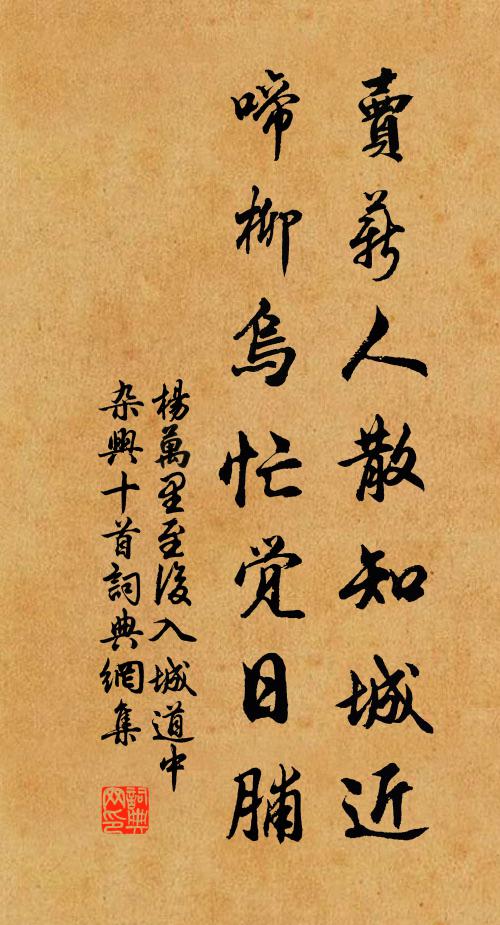 賣薪人散知城近
啼柳烏忙覚日晡
楊萬里至後入城道中
杂興十首詞典網集
詞典
网印